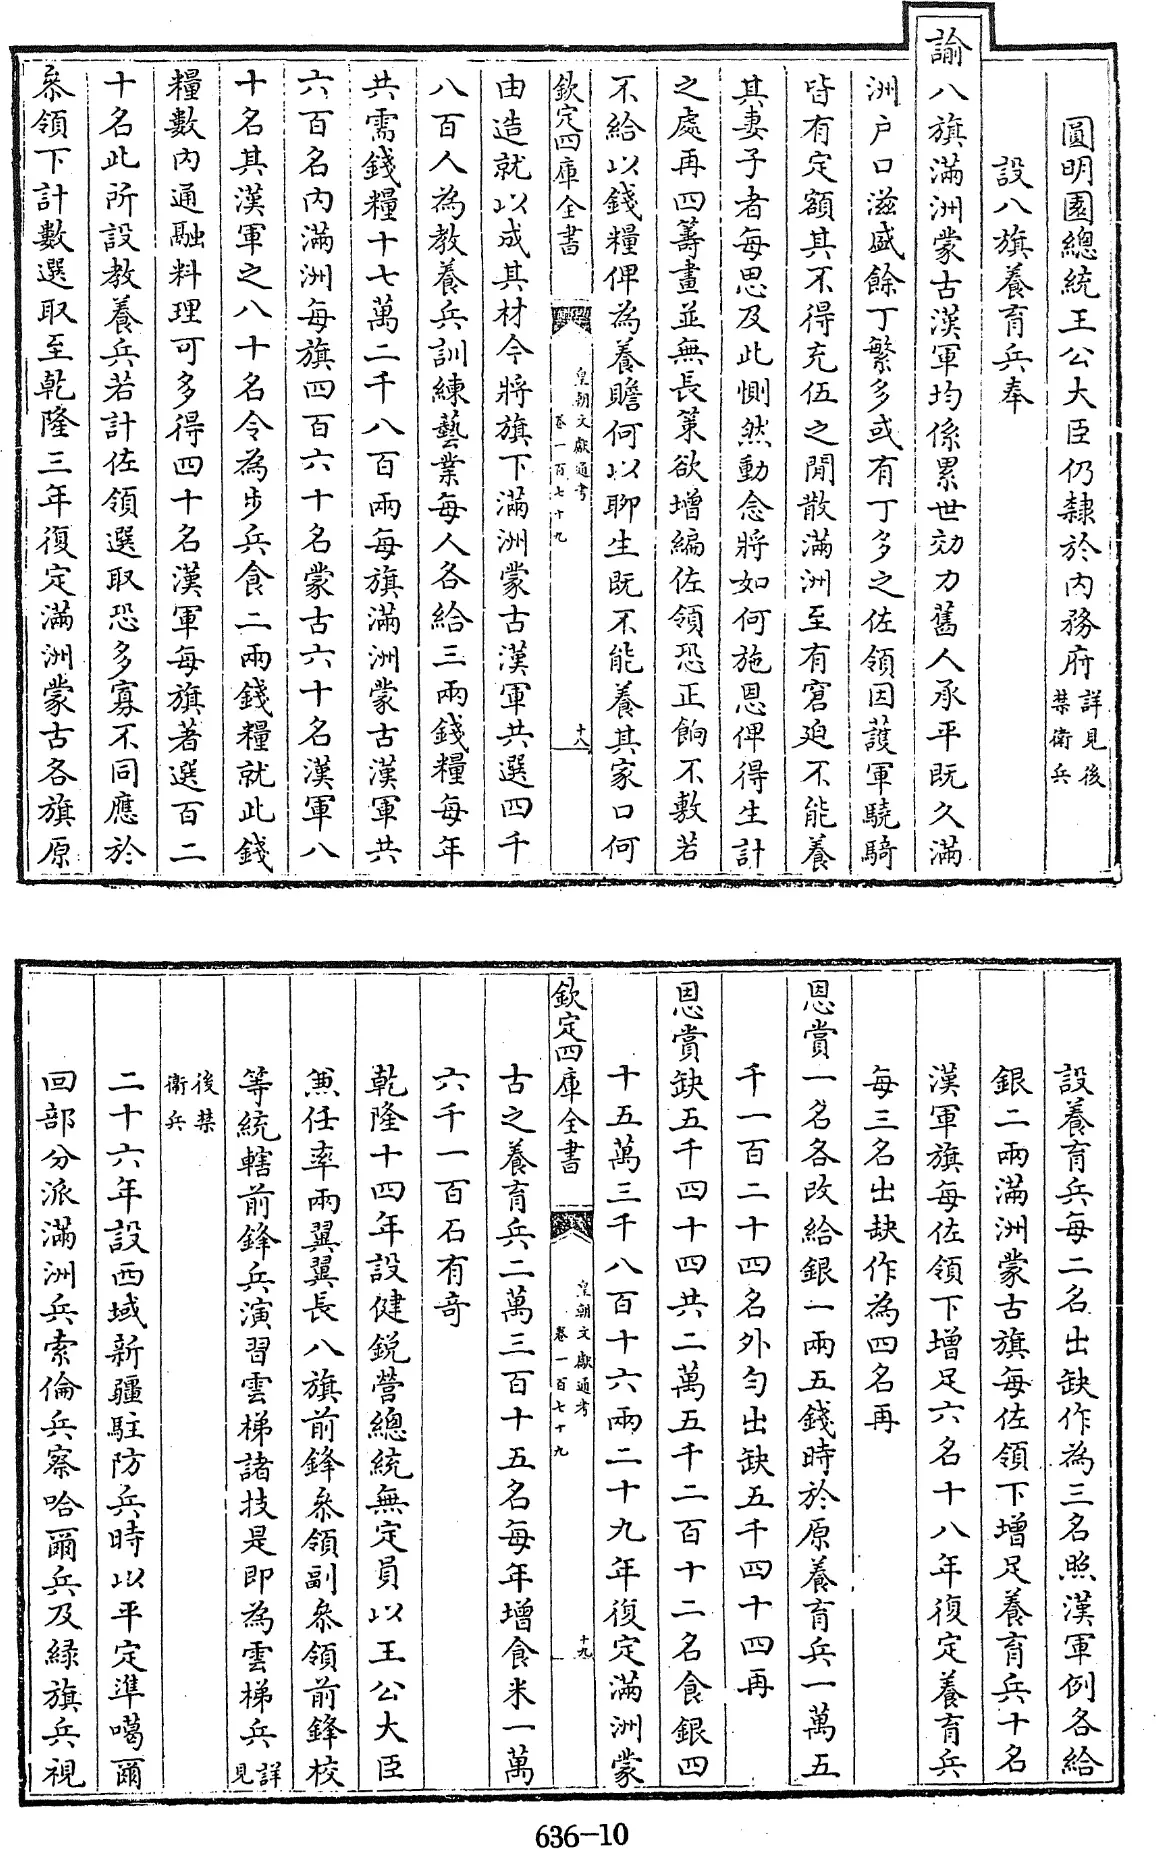 圓明園總統王公大臣仍隸於内務府詳見後禁衛兵
設八旗養育兵奉
諭八旗滿洲蒙古漢軍均係累世効力舊人承平既久滿
洲户口滋盛餘丁繁多或有丁多之佐領因護軍驍騎
皆有定額其不得充伍之閒散滿洲至有窘迫不能養
其妻子者每思及此惻然動念將如何施恩俾得生計
之處再四籌畫並無長策欲增編佐領恐正餉不敷若
不給以錢糧俾為養贍何以聊生既不能養其家口何
欽定四庫全書 皇朝文獻通考 卷一百七十九 十八
由造就以成其材今將旗下滿洲蒙古漢軍共選四千
八百人為教養兵訓練藝業每人各給三兩錢糧每年
共需錢糧十七萬二千八百兩每旗滿洲蒙古漢軍共
六百名内滿洲每旗四百六十名蒙古六十名漢軍八
十名其漢軍之八十名令為步兵食二兩錢糧就此錢
糧數内通融料理可多得四十名漢軍每旗著選百二
十名此所設教養兵若計佐領選取恐多寡不同應於
叅領下計數選取至乾隆三年復定滿洲蒙古各旗原
設養育兵每二名出缺作為三名照漢軍例各給
銀二兩滿洲蒙古旗每佐領下增足養育兵十名
漢軍旗每佐領下增足六名十八年復定養育兵
每三名出缺作為四名再
恩賞一名各改給銀一兩五錢時於原養育兵一萬五
千一百二十四名外勻出缺五千四十四再
恩賞缺五千四十四共二萬五千二百十二名食銀四
十五萬三千八百十六兩二十九年復定滿洲蒙
欽定四庫全書 皇朝文獻通考 卷一百七十九 十九
古之養育兵二萬三百十五名每年增食米一萬
六千一百石有奇
乾隆十四年設健鋭營總統無定員以王公大臣
兼任率兩翼翼長八旗前鋒叅領副叅領前鋒校
等統轄前鋒兵演習雲梯諸技是即為雲梯兵詳見
後禁衛兵
二十六年設西域新疆駐防兵時以平定準噶爾
回部分派滿洲兵索倫兵察哈爾兵及緑旗兵視
636-10